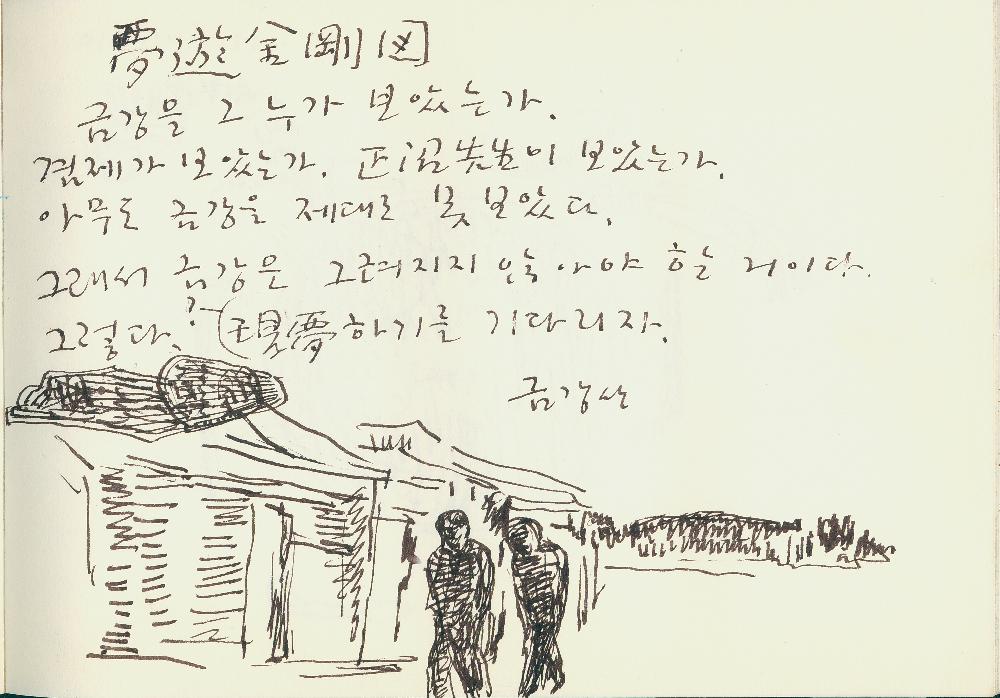 夢遊金剛図
금강을 그 누가 보았는가.
겸제가 보았는가. 正沼先生이 보았는가.
아무도 금강을 제대로 못 보았다.
그래서 금강은 그려지지 않아야 하는 거이다.
그렇다. ? 現夢하기를 기다리자.
금강산